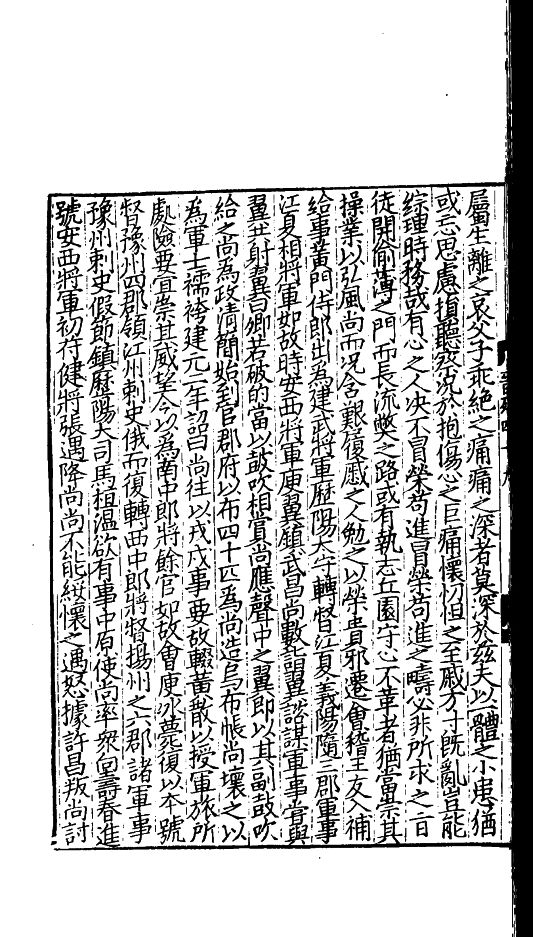 屬生離之哀父子乖絶之痛痛之深者莫深於兹夫以一體之小患猶
或忘思慮損聽察況於抱傷心之巨痛懷忉怛之至戚方寸既亂豈能
綜理時務哉有心之人决不冒榮苟進冒榮苟進之疇必非所求之旨
徒開偷薄之門而長流弊之路或有執志丘園守心不革者猶當崇其
操業以弘風尚而况含艱履慼之人勉之以榮貴邪遷會稽王友入補
給事黄門侍郎出為建武將軍歷陽太守轉督江夏義陽隨三郡軍事
江夏相將軍如故時安西將軍庾翼鎮武昌尚數詣翼諮謀軍事嘗與
翼共射翼曰卿若破的當以鼓吹相賞尚應聲中之翼即以其副鼓吹
給之尚為政清簡始到官郡府以布四十匹為尚造烏布帳尚壞之以
為軍士襦袴建元二年詔曰尚往以戎戍事要故輟黄散以授軍旅所
處險要宜崇其威望今以為南中郎將餘官如故會庾冰薨復以本號
督豫州四郡領江州刺史俄而復轉西中郎將督揚州之六郡諸軍事
豫州刺史假節鎮歷陽大司馬桓温欲有事中原使尚率衆向壽春進
號安西將軍初苻健將張遇降尚尚不能綏懷之遇怒據許昌叛尚討